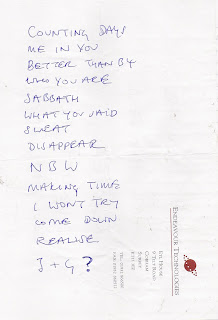 COUNTING DAYS
ME IN YOU
BETTER THAN BY
WHO YOU ARE
SABBATH
WHAT YOU SAID
SWEAT
DISAPPEAR
NBW
MAKING TIME
I WONT TRY
COME DOWN
REALISE
J + G ?
ENDEAVOUR TECHNOLOGIES